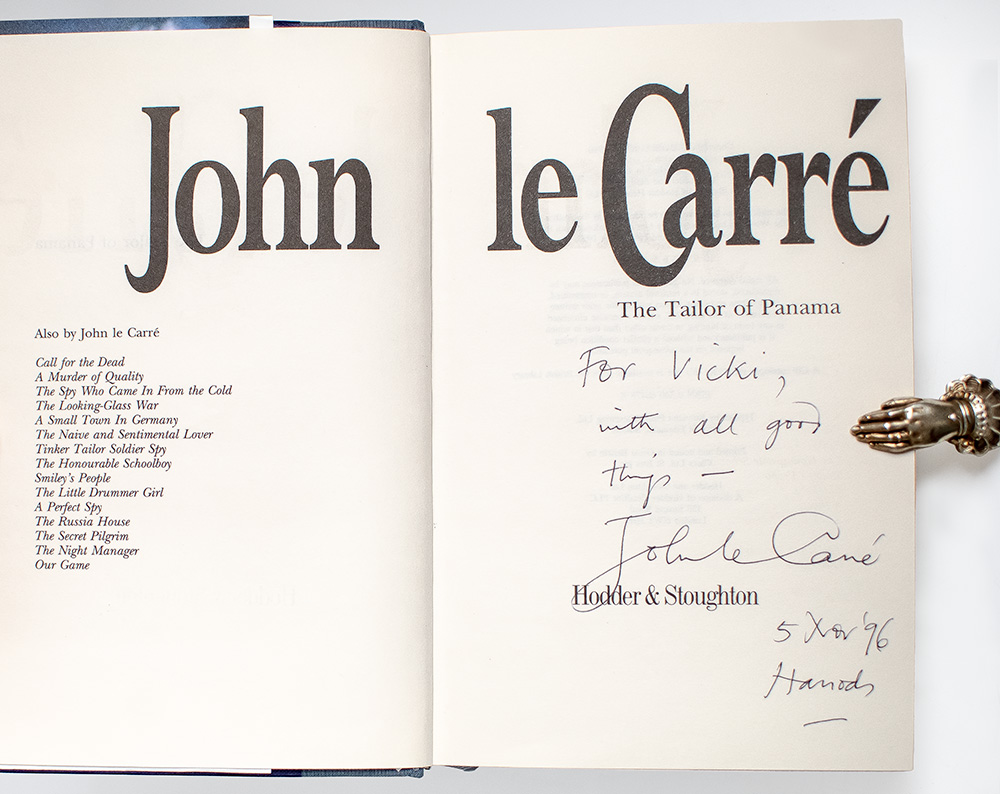 John
le Carré
Also by John le Carré
Call for the Dead
A Murder of Quality
The Spy Who Came In From the Cold
The Looking-Glass War
A Small Town In Germany
The Naive and Sentimental Lover
Tinker Tailor Soldier Spy
The Honourable Schoolboy
Smiley's People
The Little Drummer Girl
A Perfect Spy
The Russia House
The Secret Pilgrim
The Night Manager
Our Game
The Tailor of Panama
For Vicki,
with all good
things —
John le Carré
Hodder & Stoughton
5 Nov '96
Harrods